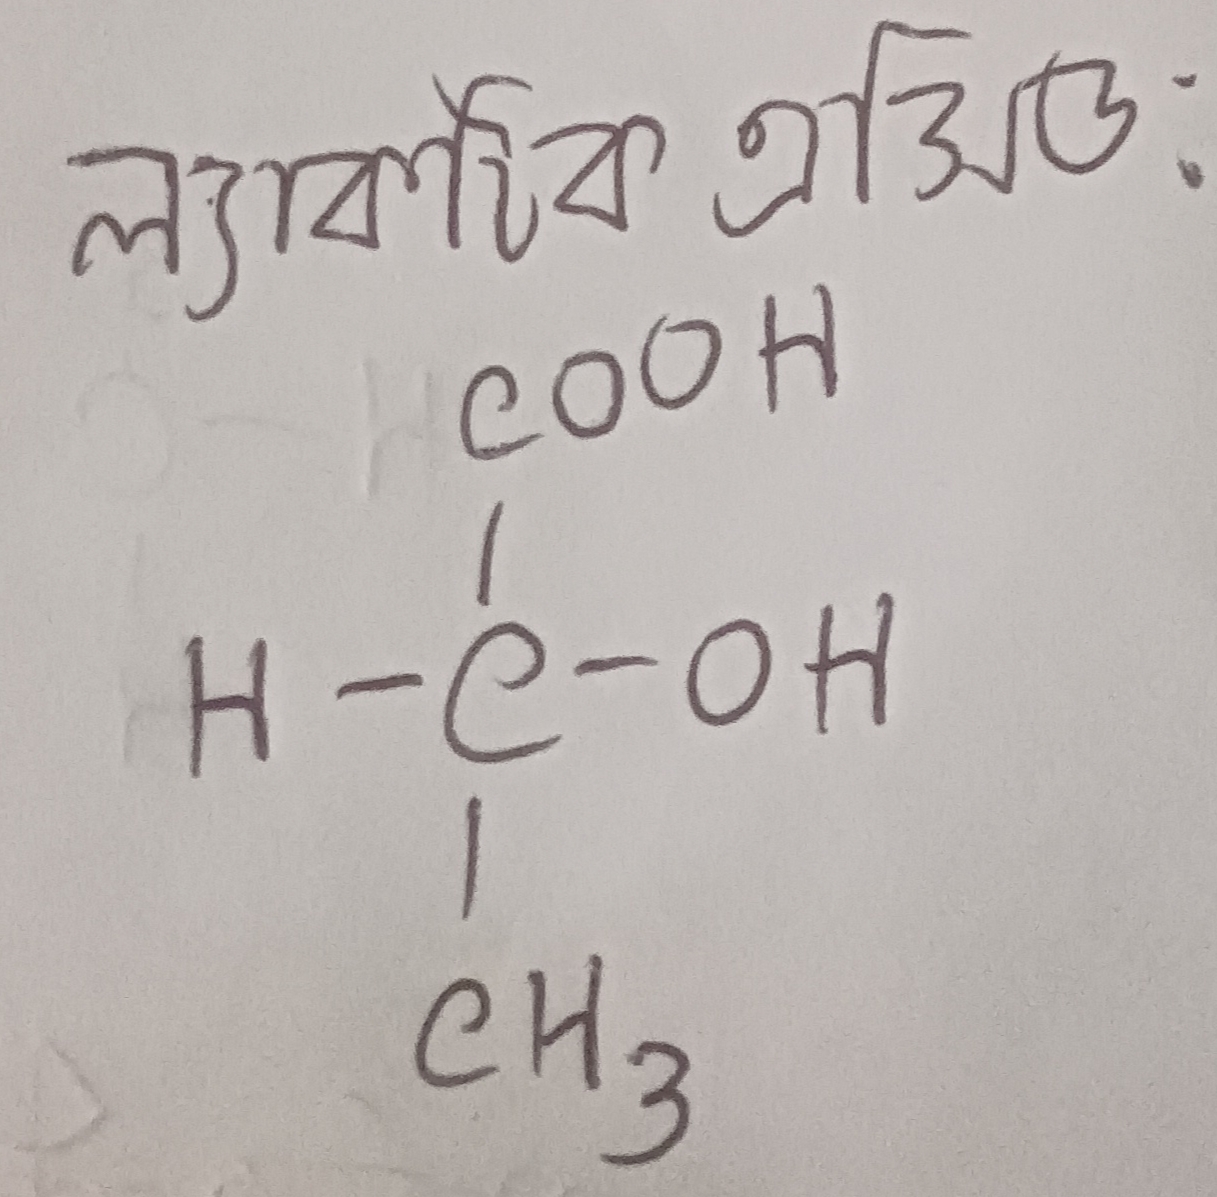 ল্যাকটিক এসিড:
COOH
|
H-C-OH
|
CH3